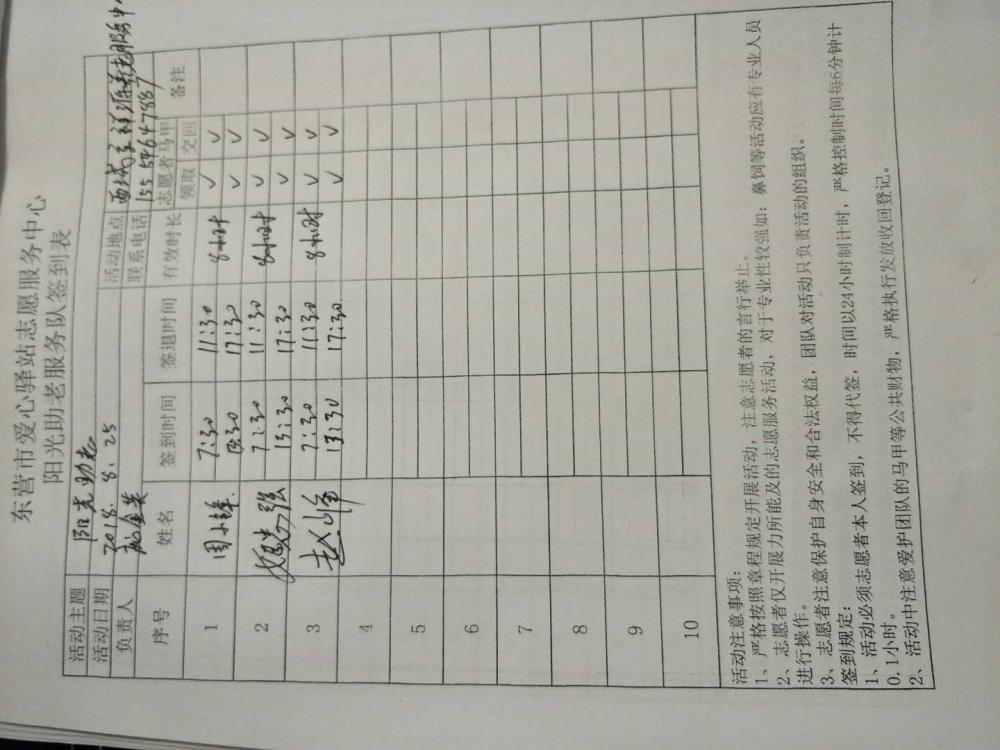 东营市爱心驿站志愿服务中心
阳光助老服务队签到表
活动主题 阳光助老 活动地点
活动日期 2018.8.25 联系电话 15554647887
负责人 志愿者马甲 备注
序号 姓名 签到时间 签退时间 有效时长 领取 交回
1 周小锋 7:30 11:30 8小时 ✓ ✓
13:30 17:30 ✓ ✓
2 7:30 11:30 8小时 ✓ ✓
13:30 17:30 ✓ ✓
3 7:30 11:30 8小时 ✓ ✓
13:30 17:30 ✓ ✓
4
5
6
7
8
9
10
活动注意事项:
1、严格按照章程规定开展活动，注意志愿者的言行举止。
2、志愿者仅开展力所能及的志愿服务活动，对于专业性较强如：鼻饲等活动应有专业人员
进行操作。
3、志愿者注意保护自身安全和合法权益，团队对活动只负责活动的组织。
签到规定:
1、活动必须志愿者本人签到，不得代签，时间以24小时制计时，严格控制时间每6分钟计
0.1小时。
2、活动中注意爱护团队的马甲等公共财物，严格执行发放收回登记。